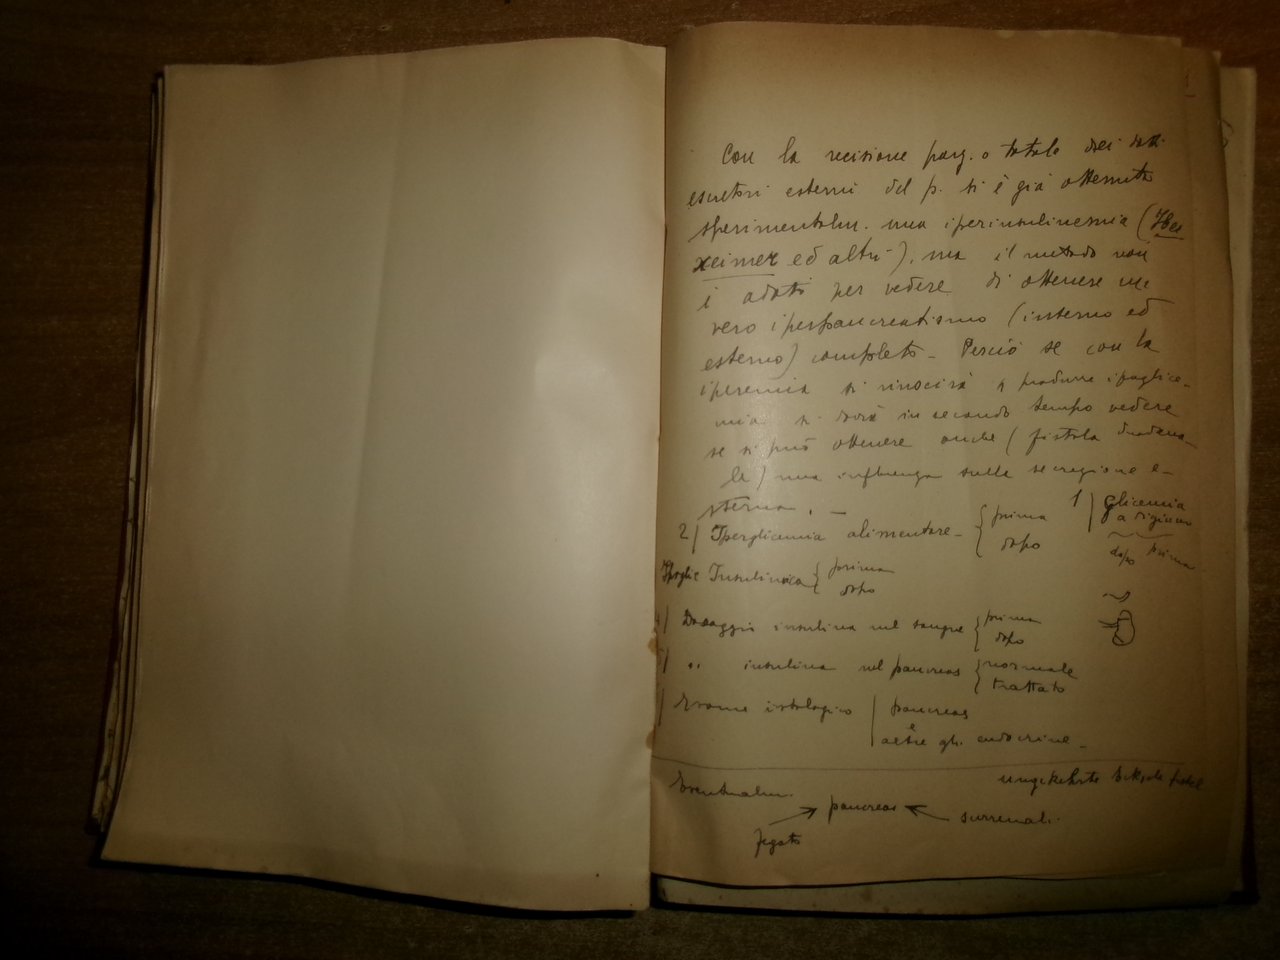 Con la recisione parz. o totale dei dotti
escretori esterni del p. si è già ottenuto
sperimentalm. una iperinsulinemia (Her
xeimer ed altri), ma il metodo non
è adatto per vedere di ottenere un
vero iperpancreatismo (interno ed
esterno) completo - Perciò se con la
iperemia si riuscirà a produrre ipoglice-
mia si dovrà in secondo tempo vedere
se si può ottenere anche (fistola duodena-
le) una influenza sulla secrezione e-
sterna. -
1) glicemia a digiuno
prima
dopo
2) Iperglicemia alimentare - { prima
dopo
Ipoglic Insulinica { prima
dopo
Dosaggio insulina nel sangue { prima
dopo
" insulina nel pancreas { normale
trattato
Esame istologico | pancreas
e
altre gh. endocrine -
Eventualm.
umgekehrte
pancreas
fegato
surrenali